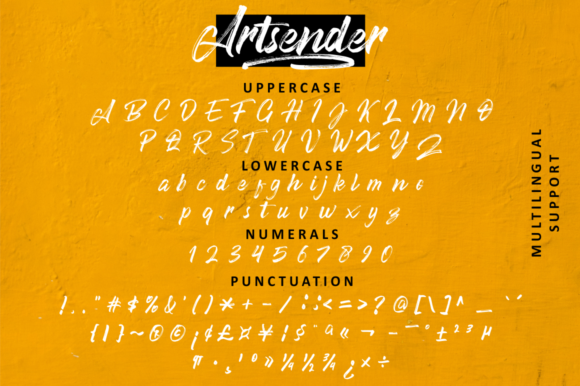 Artsender
UPPERCASE
A B C D E F G H I J K L M N O
P Q R S T U V W X Y Z
LOWERCASE
a b c d e f g h i j k l m n o
p q r s t u v w x y z
NUMERALS
1 2 3 4 5 6 7 8 9 0
PUNCTUATION
! . , " # $ % & ' ( ) * + - / : ; < = > ? @ [ \ ] ^ _ ` ´
{ | } ~ ® © ¡ ¢ £ ¤ ¥ ¦ § ¨ ª « ¬ - ¯ ° ± ² ³ µ
¶ · ¸ ¹ º » ¼ ½ ¾ ¿ × ÷
MULTILINGUAL
SUPPORT